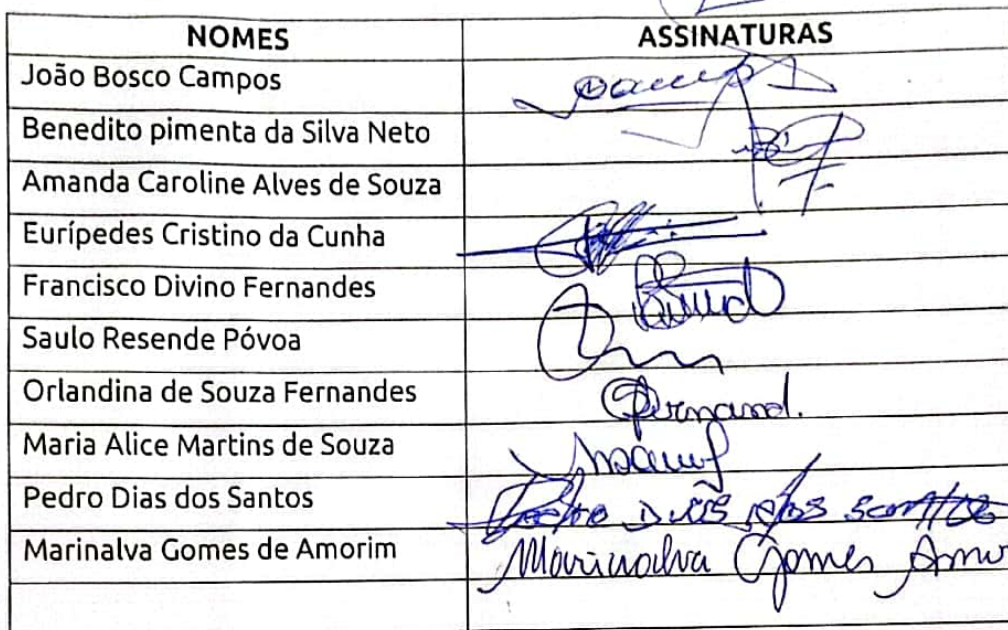 NOMES ASSINATURAS
João Bosco Campos
Benedito pimenta da Silva Neto
Amanda Caroline Alves de Souza
Eurípedes Cristino da Cunha
Francisco Divino Fernandes
Saulo Resende Póvoa
Orlandina de Souza Fernandes
Maria Alice Martins de Souza
Pedro Dias dos Santos Pedro Dias dos santos
Marinalva Gomes de Amorim Marinalva Gomes